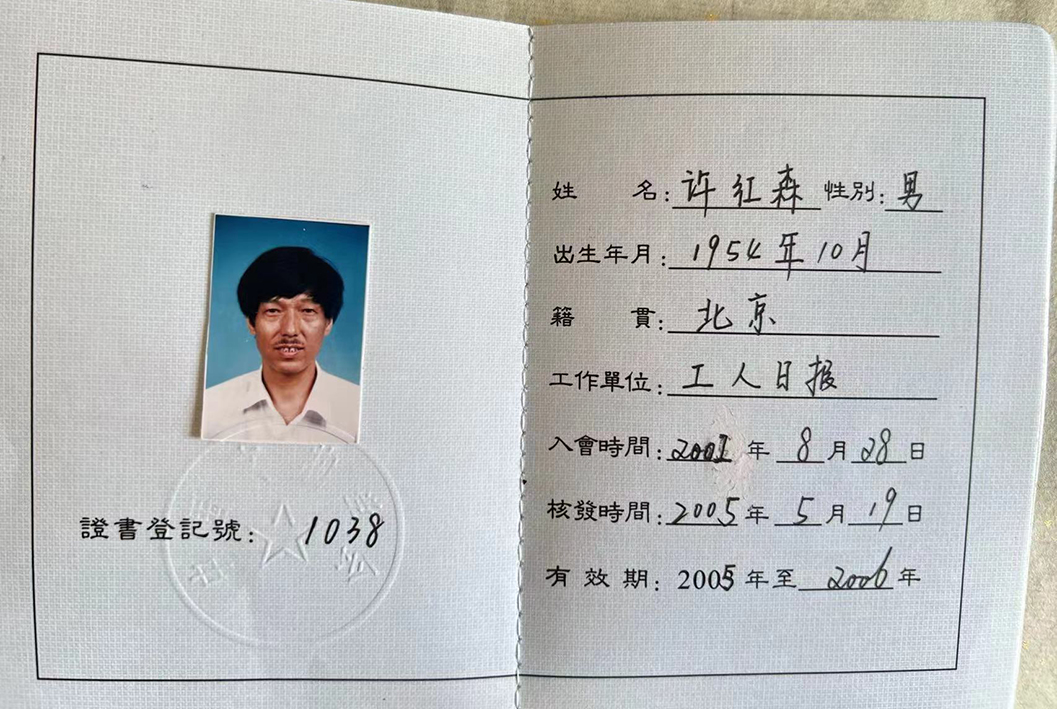 證書登記號: 1038
姓 名: 许红森 性別: 男
出生年月: 1954年10月
籍 貫: 北京
工作單位: 工人日报
入會時間: 2001年 8月28日
核發時間: 2005年 5月19日
有 效 期: 2005年至 2006年